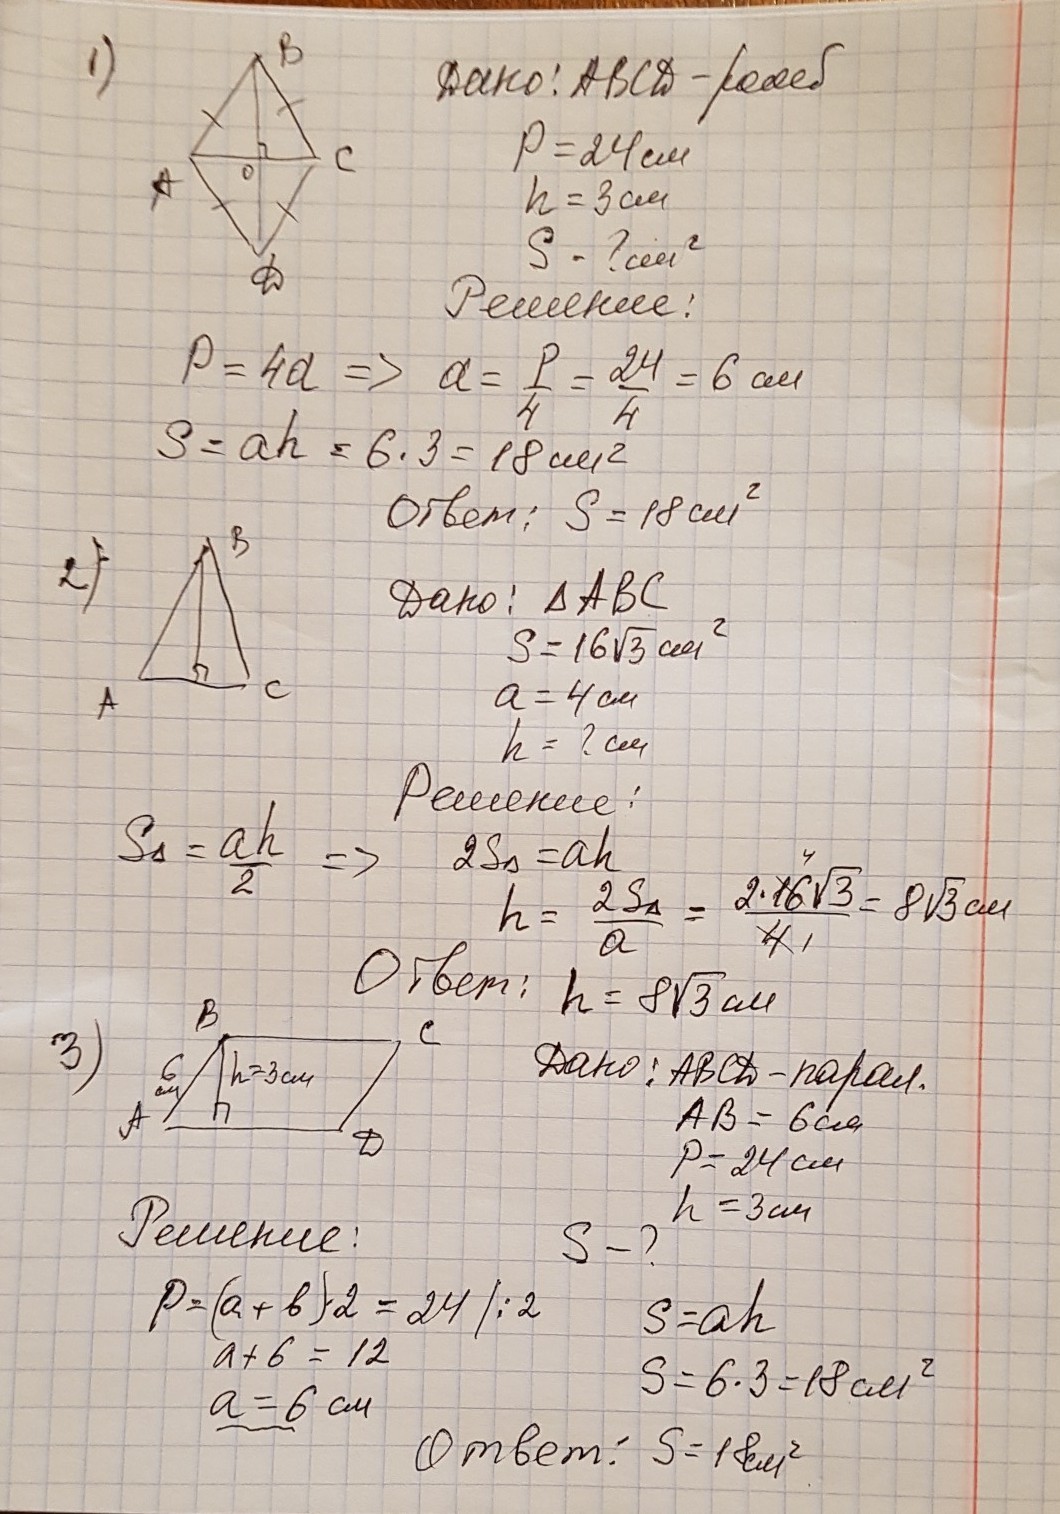 1)
B
A
O
C
D
Дано: ABCD - ромб
P = 24 см
h = 3 см
S - ? см²
Решение:
P = 4a => a = P/4 = 24/4 = 6 см
S = ah = 6·3 = 18 см²
Ответ: S = 18 см²
2)
B
A
C
Дано: △ABC
S = 16√3 см²
a = 4 см
h = ? см
Решение:
S△ = ah/2 => 2S△ = ah
h = 2S△/a = 2·16√3/4 = 8√3 см
4
1
Ответ: h = 8√3 см
3)
B
C
6 см
h=3см
A
D
Дано: ABCD - парал.
AB = 6 см
P = 24 см
h = 3 см
S - ?
Решение:
P = (a + b)·2 = 24 /:2
a + 6 = 12
a = 6 см
S = ah
S = 6·3 = 18 см²
Ответ: S = 18 см²